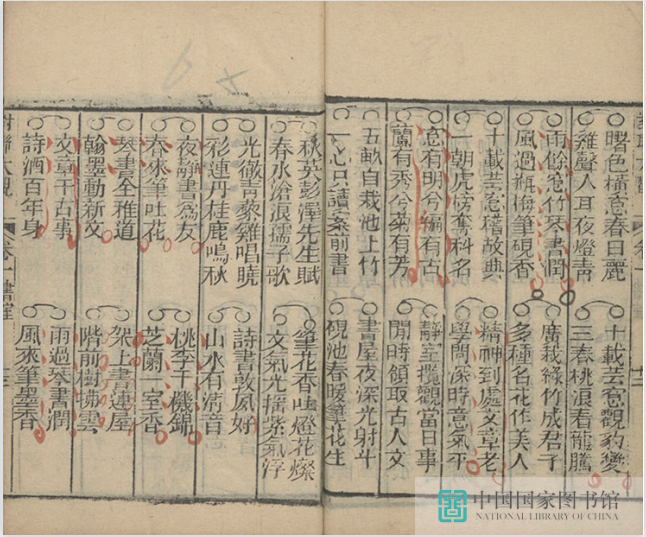 曙色橫窓春日麗
雞聲入耳夜燈靑
雨餘窓竹琴書潤
風過瓶梅筆硯香
十載芸窓稽故典
一朝虎榜奪科名
窓有明兮編有古
蘭有秀兮菊有芳
五畝自栽池上竹
一心只讀案前書
十載芸窓觀豹變
三春桃浪看龍騰
廣栽綠竹成君子
多種名花作美人
精神到處文章老
學問深時意氣平
靜室攬觀當日事
閒時領取古人文
書屋夜深光射斗
硯池春暖筆花生
秋英彭澤先生賦
春水滄浪孺子歌
光徹靑藜雞唱曉
彩連丹桂鹿鳴秋
夜靜書為友
春來筆吐花
琴書全雅道
翰墨動新文
文章千古事
詩酒百年身
筆花香吐燈花燦
文氣光搖紫氣浮
詩書敦夙好
山水有清音
桃李千機錦
芝蘭一室香
架上書連屋
階前樹拂雲
雨過琴書潤
風來筆墨香
對聯大觀 卷一 書室
中国国家图书馆
NATIONAL LIBRARY OF CHINA